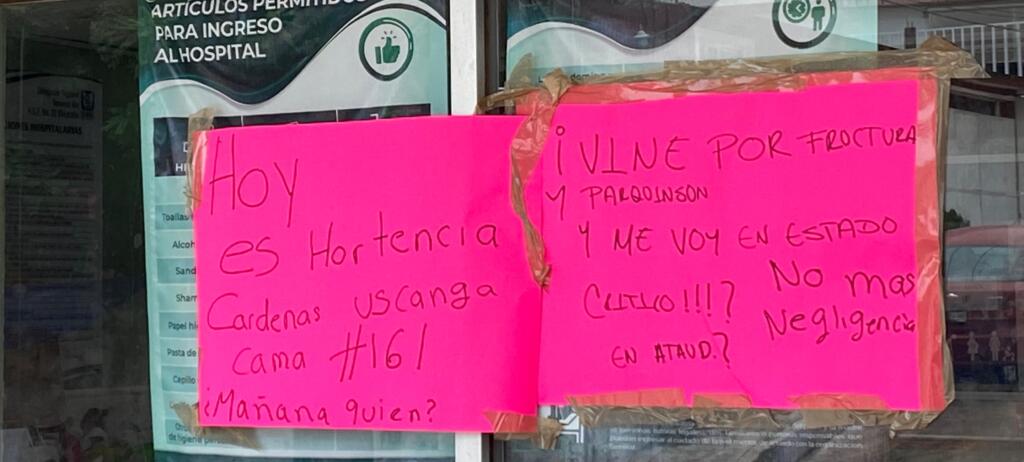 ARTÍCULOS PERMITIDOS
PARA INGRESO
AL HOSPITAL
Toallas
Alcoh
Sand
Sham
Papel hi
Pasta de
Capillo
de higiene per
Hoy
es Hortencia
Cardenas uscanga
cama #161
¿Mañana quien?
¡VINE POR FROCTURA
Y PARQUINSON
Y ME VOY EN ESTADO
CRITICO!!!?
EN ATAUD.?
No mas
Negligencia